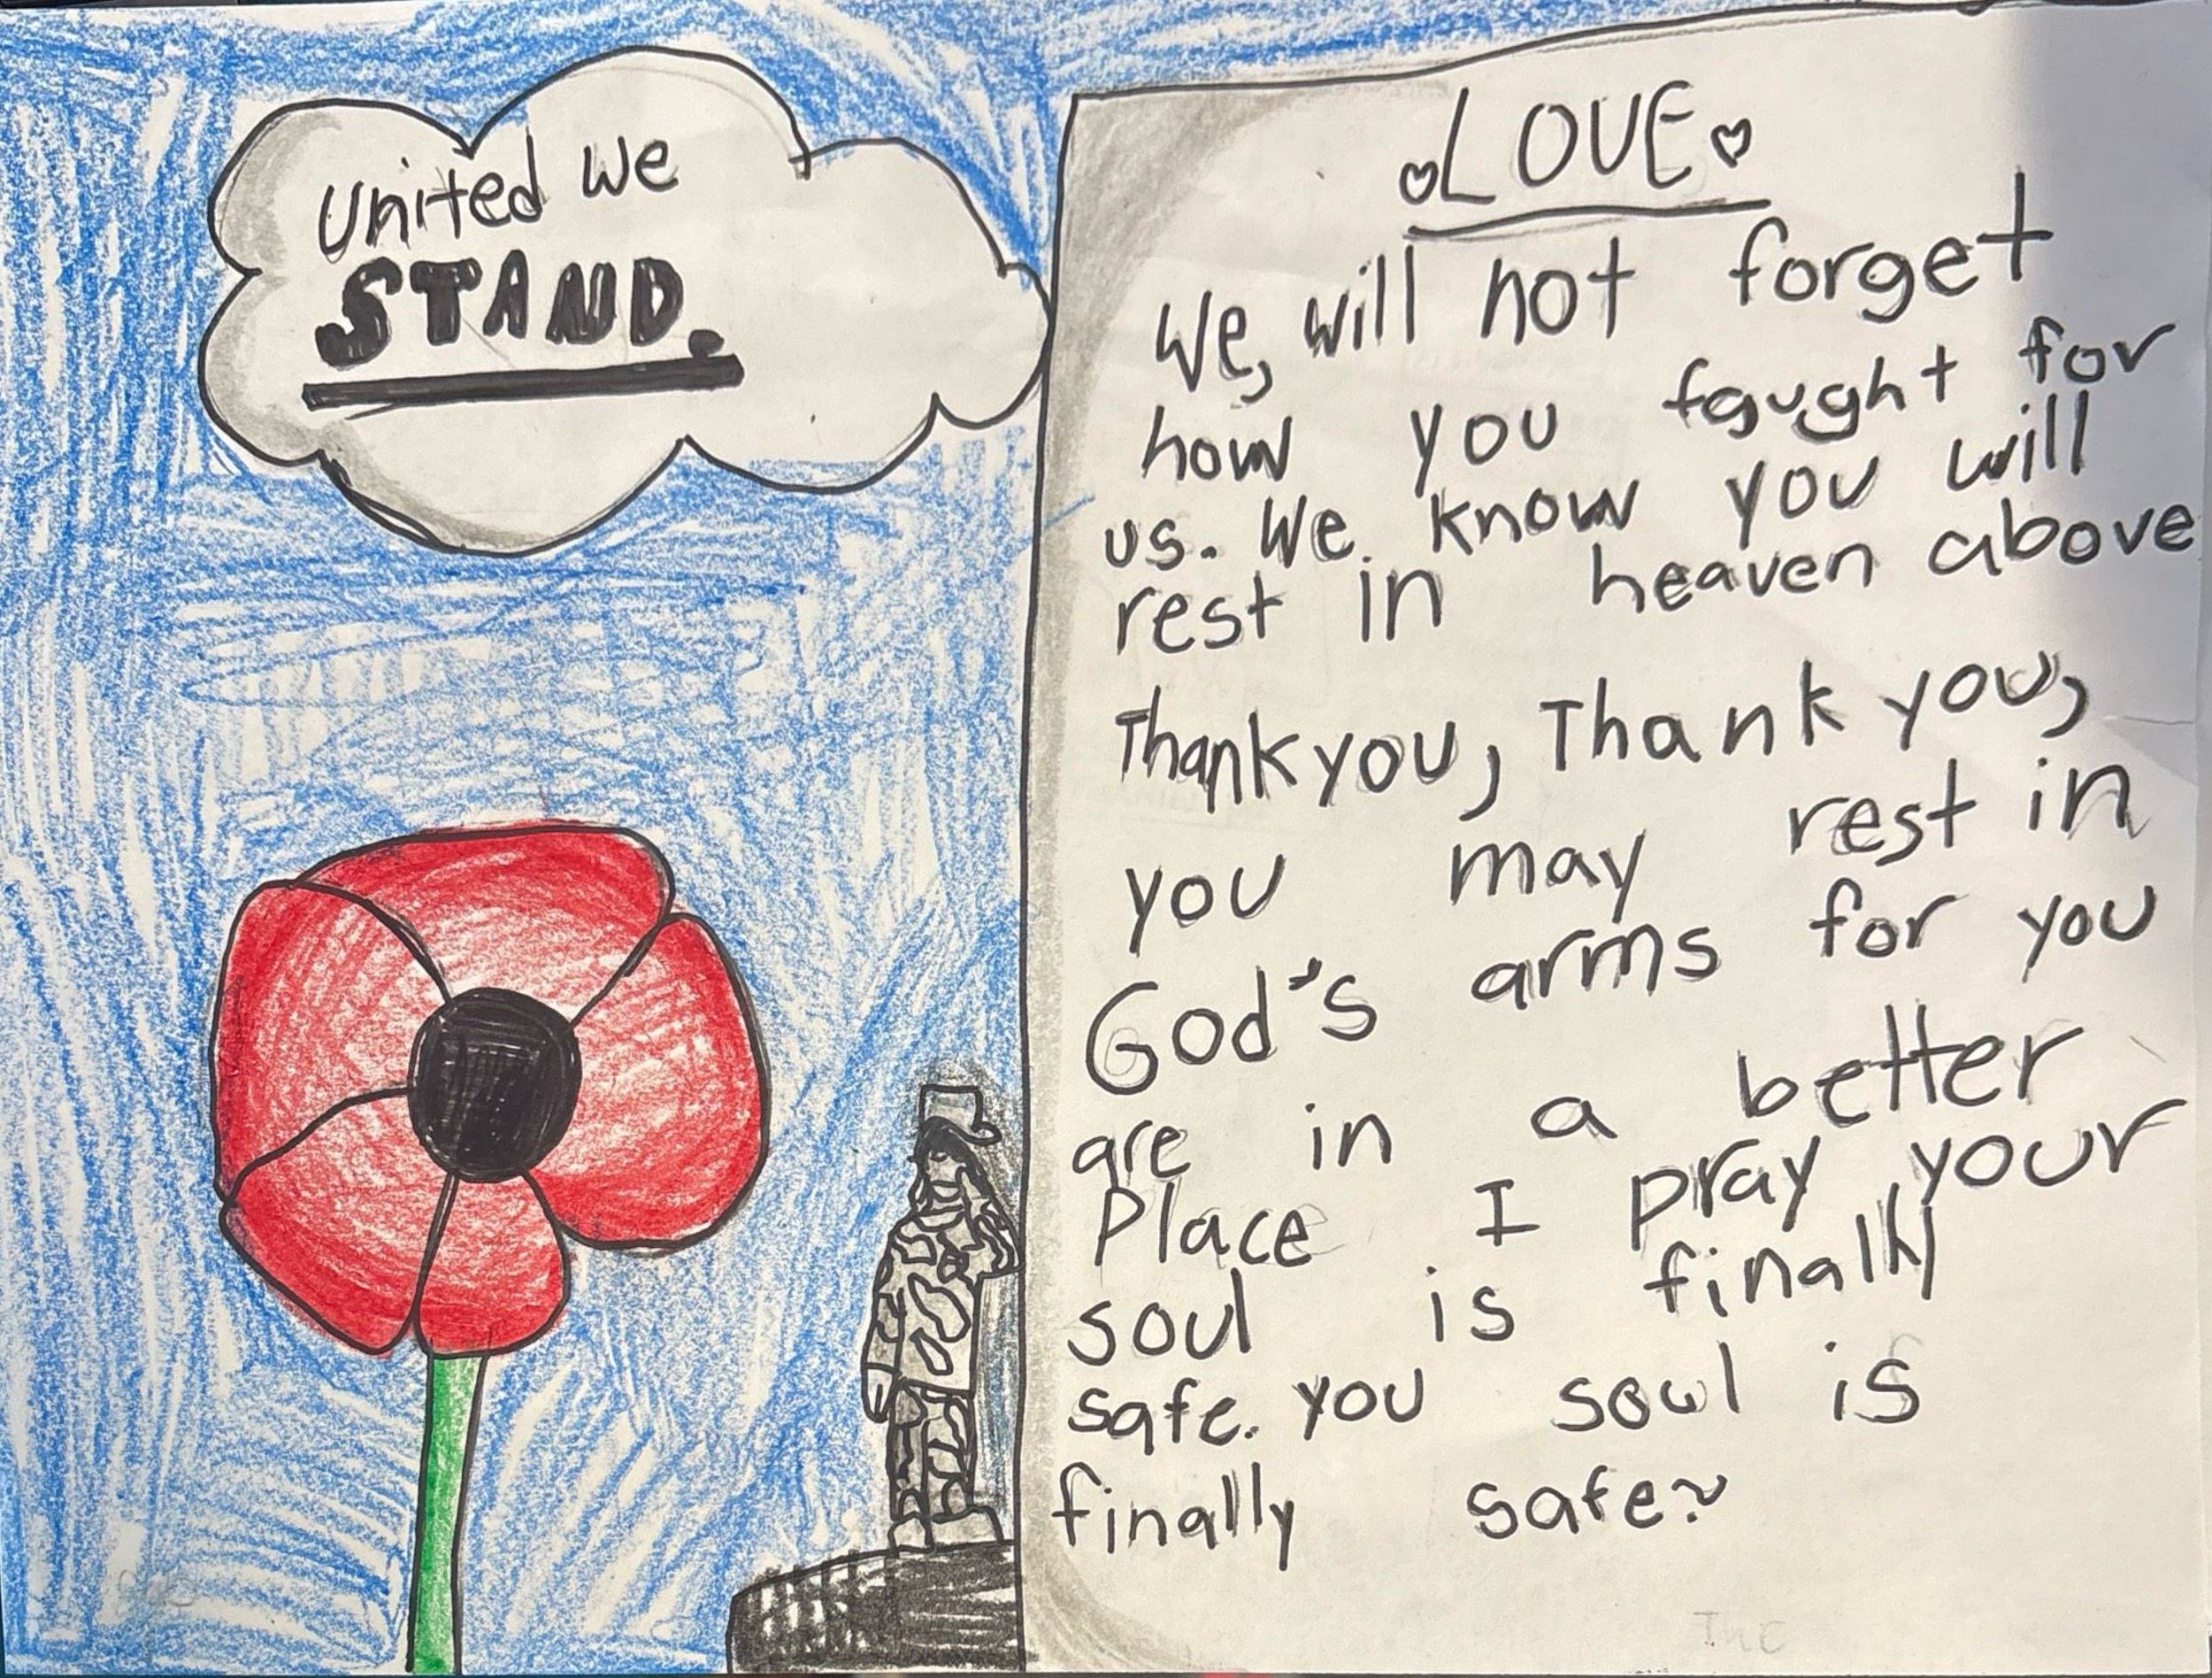 United We
STAND.
LOVE
We, will not forget
how you faught for
us. We know you will
rest in heaven above
Thank you, Thank you,
you may rest in
God's arms for you
are in a better
Place I pray your
soul is finally
safe. you soul is
finally safe~